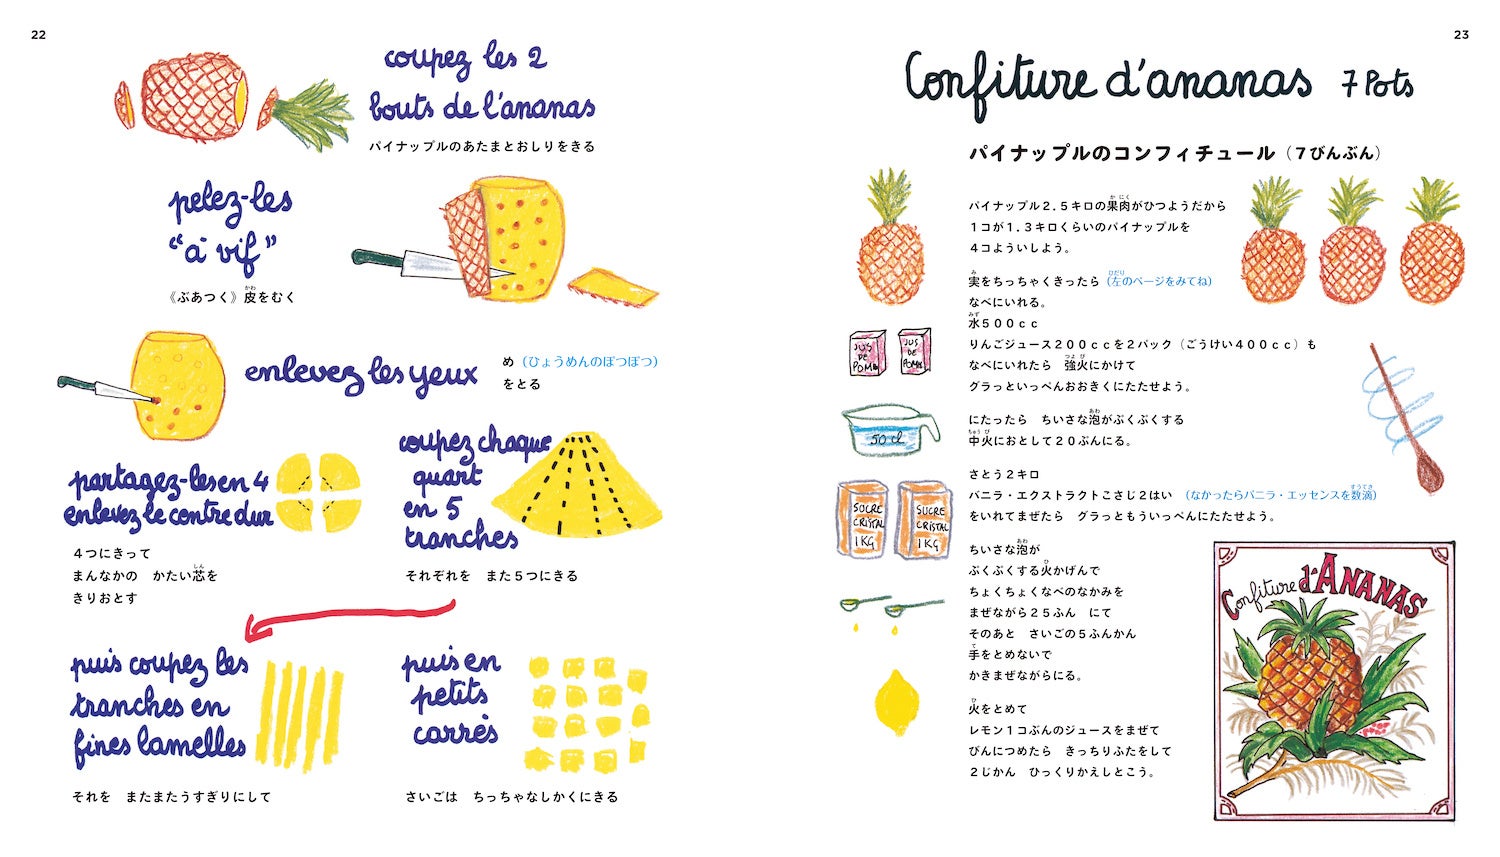 22
coupez les 2
bouts de l'ananas
パイナップルのあたまとおしりをきる
pelez-les
"à vif"
《ぶあつく》皮をむく
かわ
enlevez les yeux
め（ひょうめんのぽつぽつ）
をとる
partagez-les en 4
enlevez le contre dur
4つにきって
まんなかの　かたい芯を
しん
きりおとす
coupez chaque
quart
en 5
tranches
それぞれを　また5つにきる
puis coupez les
tranches en
fines lamelles
それを　またまたうすぎりにして
puis en
petits
carrés
さいごは　ちっちゃなしかくにきる
23
Confiture d'ananas 7 Pots
パイナップルのコンフィチュール（7びんぶん）
パイナップル2.5キロの果肉がひつようだから
かにく
1コが1.3キロくらいのパイナップルを
4コよういしよう。
実をちっちゃくきったら（左のページをみてね）
み
ひだり
なべにいれる。
水500cc
みず
りんごジュース200ccを2パック（ごうけい400cc）も
なべにいれたら　強火にかけて
つよび
グラっといっぺんおおきくにたたせよう。
にたったら　ちいさな泡がぶくぶくする
あわ
中火におとして20ぶんにる。
ちゅうび
さとう2キロ
バニラ・エクストラクトこさじ2はい　（なかったらバニラ・エッセンスを数滴）
すうてき
をいれてまぜたら　グラっともういっぺんにたたせよう。
ちいさな泡が
あわ
ぶくぶくする火かげんで
ひ
ちょくちょくなべのなかみを
まぜながら25ふん　にて
そのあと　さいごの5ふんかん
手をとめないで
て
かきまぜながらにる。
火をとめて
ひ
レモン1コぶんのジュースをまぜて
びんにつめたら　きっちりふたをして
2じかん　ひっくりかえしとこう。
JUS
DE
POME
JUS
DE
POME
50 cl
SUCRE
CRISTAL
1KG
SUCRE
CRISTAL
1KG
Confiture d'ANANAS